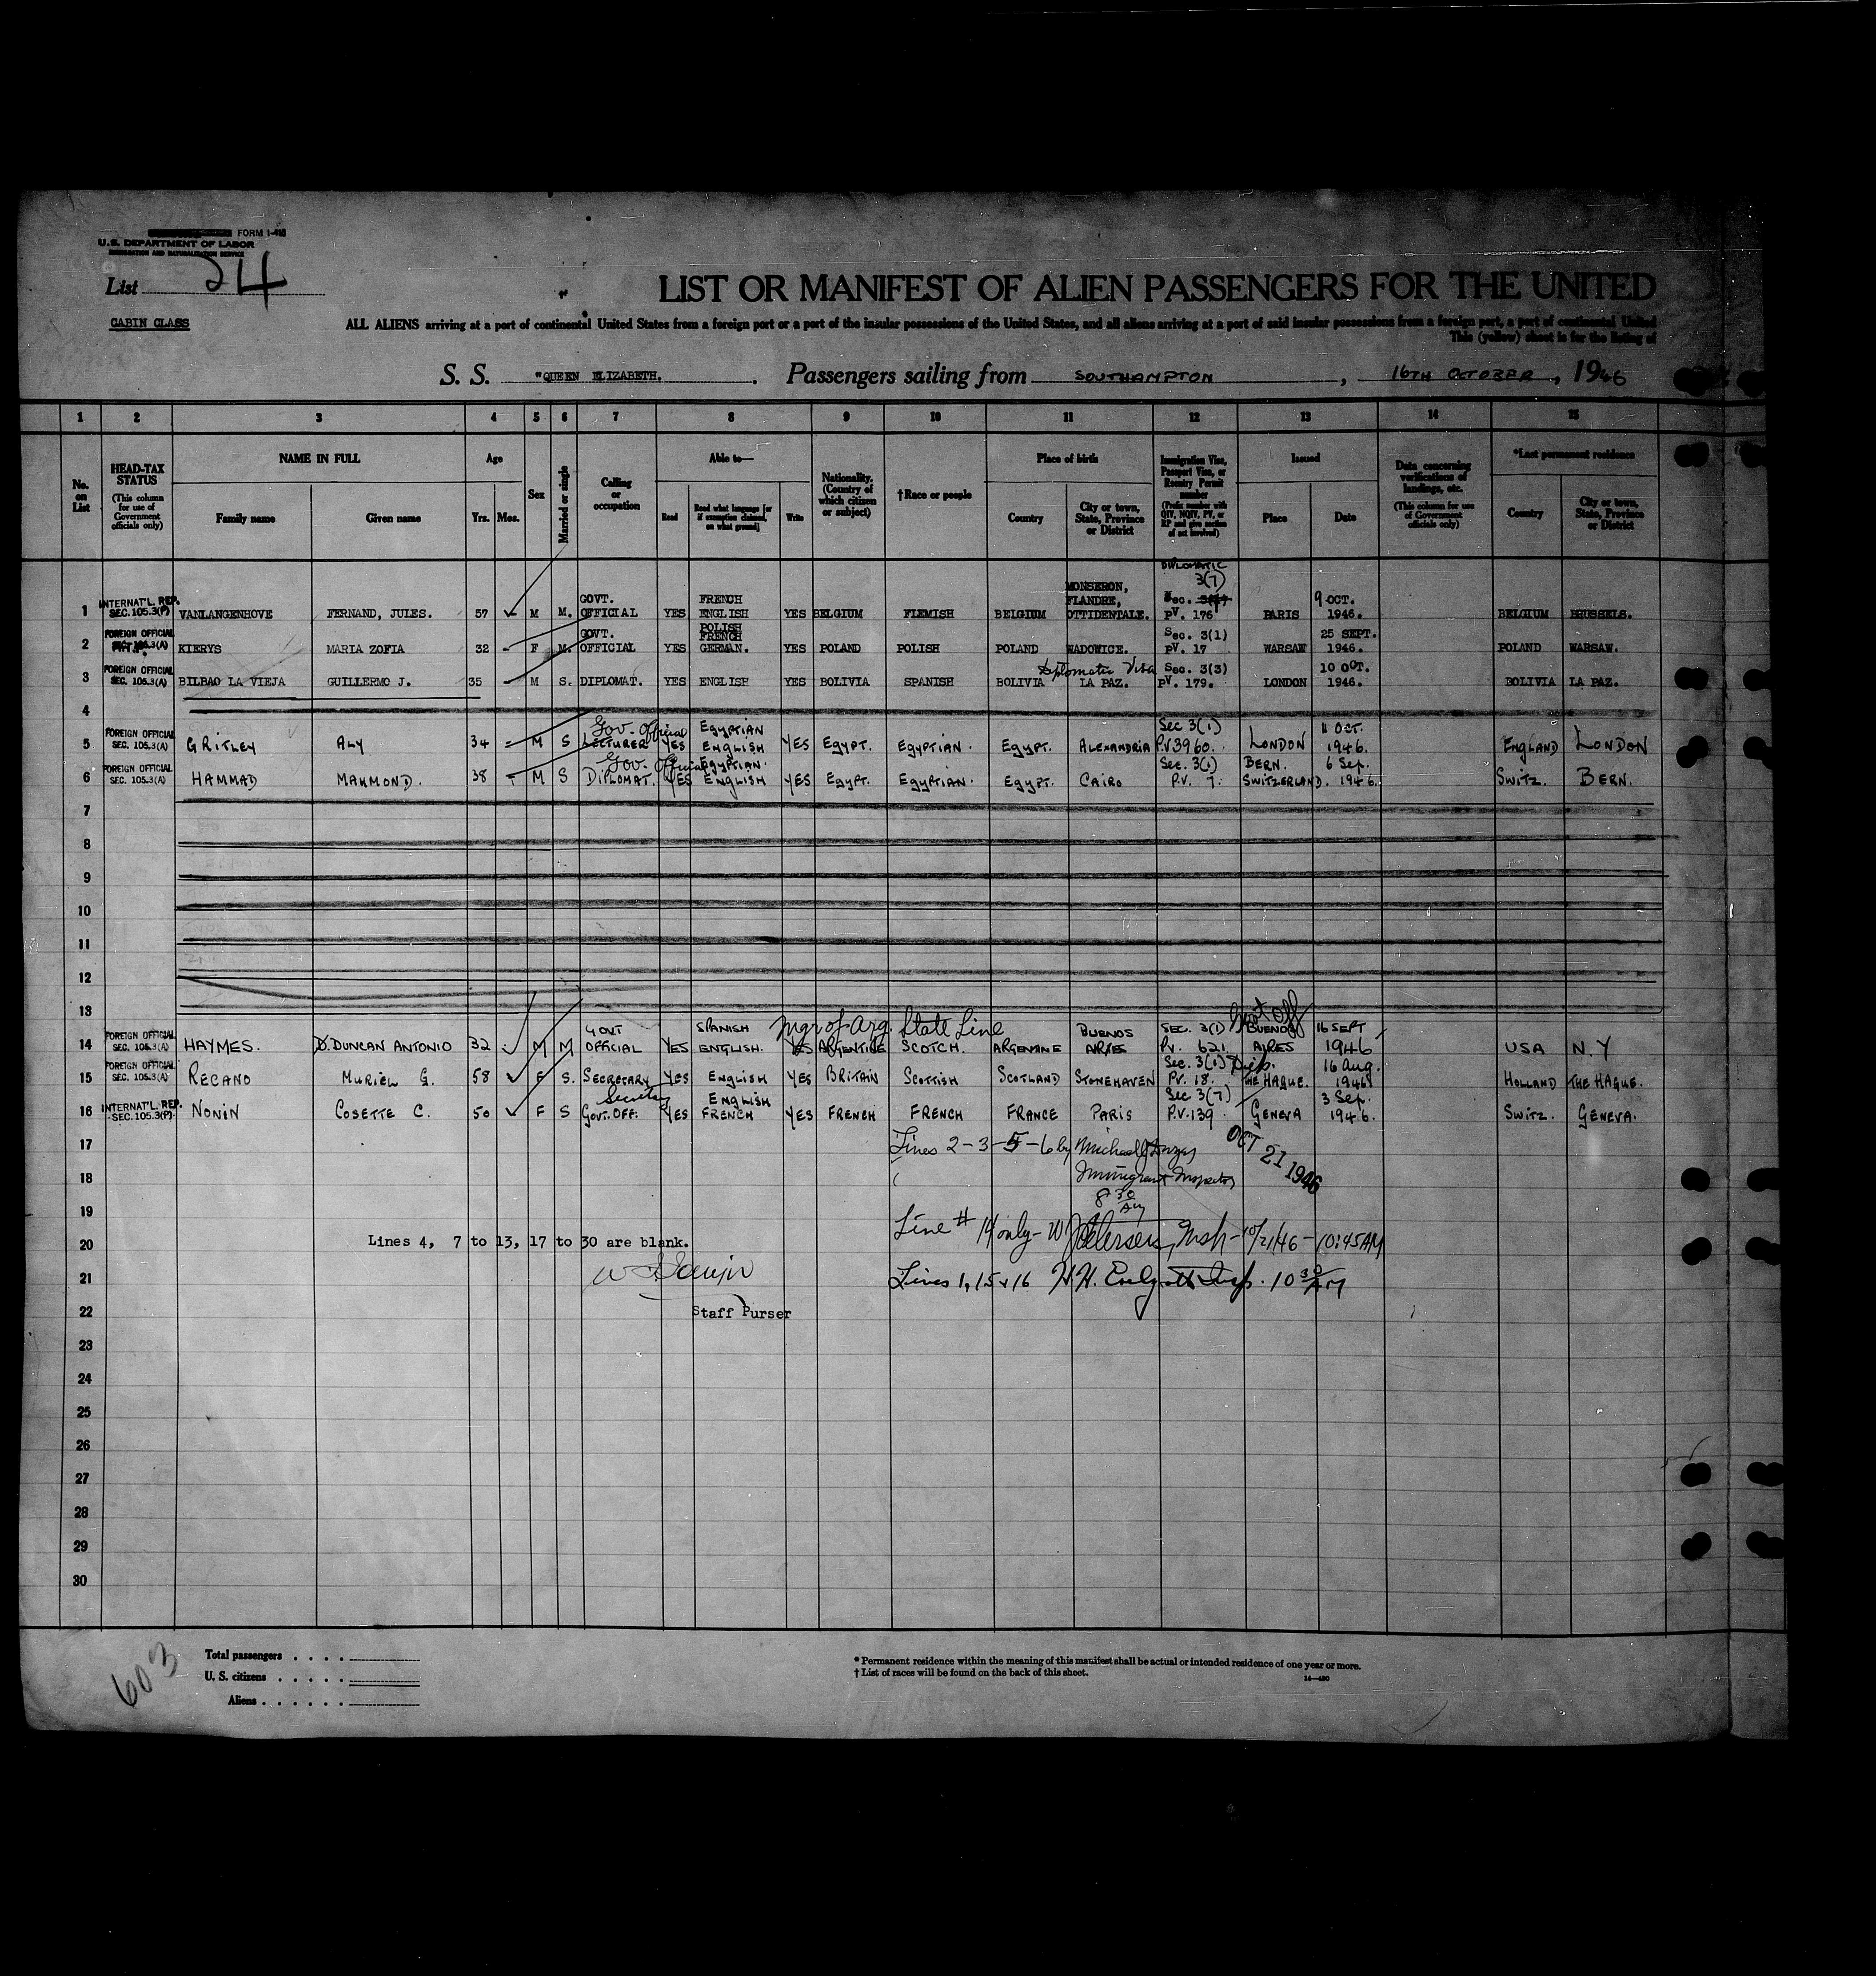 FORM I-415
U.S. DEPARTMENT OF LABOR
IMMIGRATION AND NATURALIZATION SERVICE
List 24
CABIN CLASS
LIST OR MANIFEST OF ALIEN PASSENGERS FOR THE UNITED
ALL ALIENS arriving at a port of continental United States from a foreign port or a port of the insular possessions of the United States, and all aliens arriving at a port of said insular possessions from a foreign port, a port of continental United
This (yellow) sheet is for the listing of
S. S. "QUEEN ELIZABETH. Passengers sailing from SOUTHAMPTON, 16TH OCTOBER, 1946
1 2 3 4 5 6 7 8 9 10 11 12 13 14 15
No. on List
HEAD-TAX STATUS (This column for use of Government officials only)
NAME IN FULL Family name Given name
Age Yrs. Mos.
Sex
Married or single
Calling or occupation
Able to— Read Read what language [or if exemption claimed, on what ground] Write
Nationality. (Country of which citizen or subject)
†Race or people
Place of birth Country City or town, State, Province or District
Immigration Visa, Passport Visa, or Reentry Permit number (Prefix number with QIV, NQIV, PV, or RP and give section of act involved)
Issued Place Date
Data concerning verifications of landings, etc. (This column for use of Government officials only)
*Last permanent residence Country City or town, State, Province or District
1 INTERNAT'L. REP. SEC. 105.3(P) VANLANGENHOVE FERNAND, JULES. 57 M M. GOVT. OFFICIAL YES FRENCH ENGLISH YES BELGIUM FLEMISH BELGIUM MONSERON, FLANDRE, OTTIDENTALE. DIPLOMATIC 3(7) Sec. PV. 176 PARIS 9 OCT. 1946. BELGIUM BRUSSELS.
2 FOREIGN OFFICIAL SEC. 105.3(A) KIERYS MARIA ZOFIA 32 F M. GOVT. OFFICIAL YES POLISH FRENCH GERMAN. YES POLAND POLISH POLAND WADOWICE. Sec. 3(1) PV. 17 WARSAW 25 SEPT. 1946. POLAND WARSAW.
3 FOREIGN OFFICIAL SEC. 105.3(A) BILBAO LA VIEJA GUILLERMO J. 35 M S. DIPLOMAT. YES ENGLISH YES BOLIVIA SPANISH BOLIVIA LA PAZ. Diplomatic Visa Sec. 3(3) PV. 179. LONDON 10 OCT. 1946. BOLIVIA LA PAZ.
4
5 FOREIGN OFFICIAL SEC. 105.3(A) GRITLEY ALY 34 M S Gov. Official LECTURER YES EGYPTIAN ENGLISH YES EGYPT. EGYPTIAN. EGYPT. ALEXANDRIA Sec 3(1) P.V 3960. LONDON 11 OCT. 1946. ENGLAND LONDON
6 FOREIGN OFFICIAL SEC. 105.3(A) HAMMAD MAHMOND. 38 M S Gov. Official DIPLOMAT. YES EGYPTIAN. ENGLISH YES EGYPT. EGYPTIAN. EGYPT. CAIRO Sec. 3(1) P.V. 7. BERN. SWITZERLAND. 6 Sep. 1946. SWITZ. BERN.
7
8
9
10
11
12
13
14 FOREIGN OFFICIAL SEC. 105.3(A) HAYMES. D. DUNCAN ANTONIO 32 M M GOVT OFFICIAL YES SPANISH ENGLISH. YES Mgr of Arg. State Line ARGENTINE SCOTCH. ARGENTINE BUENOS AIRES SEC. 3(1) Pv. 621 Govt Off BUENOS AIRES 16 SEPT 1946 USA N.Y
15 FOREIGN OFFICIAL SEC. 105.3(A) RECANO MURIEL G. 58 F S. SECRETARY YES ENGLISH YES BRITAIN SCOTTISH SCOTLAND STONEHAVEN Sec. 3(1) Dip. PV. 18. THE HAGUE. 16 Aug. 1946 HOLLAND THE HAGUE.
16 INTERNAT'L. REP. SEC. 105.3(P) NONIN COSETTE C. 50 F S Secretary GOVT. OFF. YES ENGLISH FRENCH YES FRENCH FRENCH FRANCE PARIS Sec 3(7) P.V. 139 GENEVA 3 Sep. 1946. SWITZ. GENEVA.
17
Lines 2-3-5-6 by Michael
OCT 21 1946
18
Immigrant Inspector
8 30 AM
19
Line # 14 only - W Petersen, Insp - 10/21/46 - 10:45 AM
20
Lines 4, 7 to 13, 17 to 30 are blank.
21
Lines 1, 15 & 16 H.H. Insp. 10 30 AM
22
Staff Purser
23
24
25
26
27
28
29
30
603
Total passengers
U. S. citizens
Aliens
* Permanent residence within the meaning of this manifest shall be actual or intended residence of one year or more.
† List of races will be found on the back of this sheet.
14—430